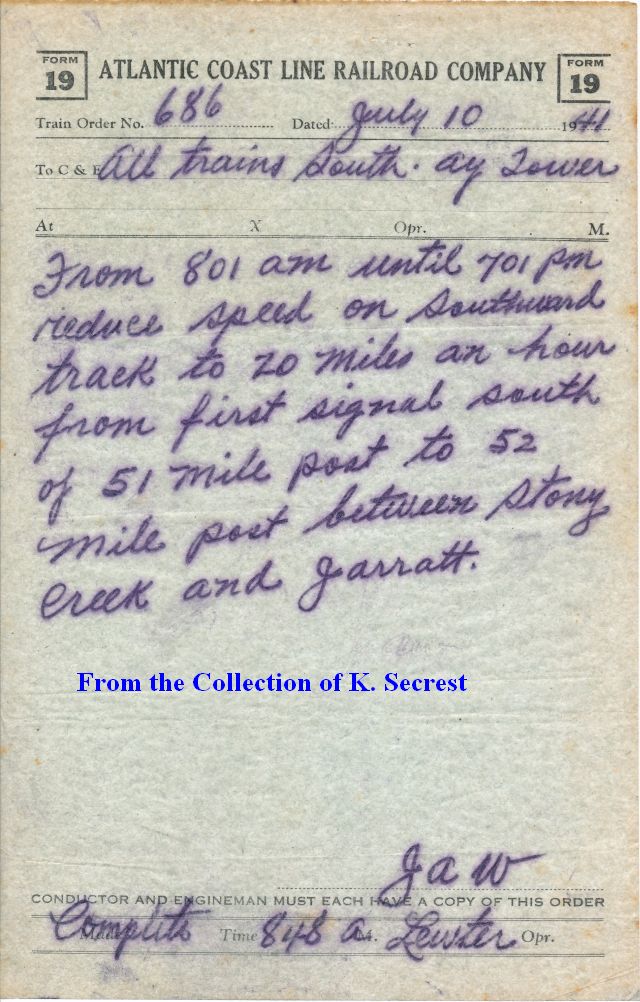 FORM 19 ATLANTIC COAST LINE RAILROAD COMPANY FORM 19
Train Order No. 686 Dated July 10 1941
To C & E All trains South. ay Tower
At X Opr. M.
From 801 am until 701 pm
reduce speed on Southward
track to 20 miles an hour
from first signal south
of 51 mile post to 52
mile post between Stony
Creek and Jarratt.
From the Collection of K. Secrest
J a W
CONDUCTOR AND ENGINEMAN MUST EACH HAVE A COPY OF THIS ORDER
Made Complete Time 848 a M. Lewter Opr.